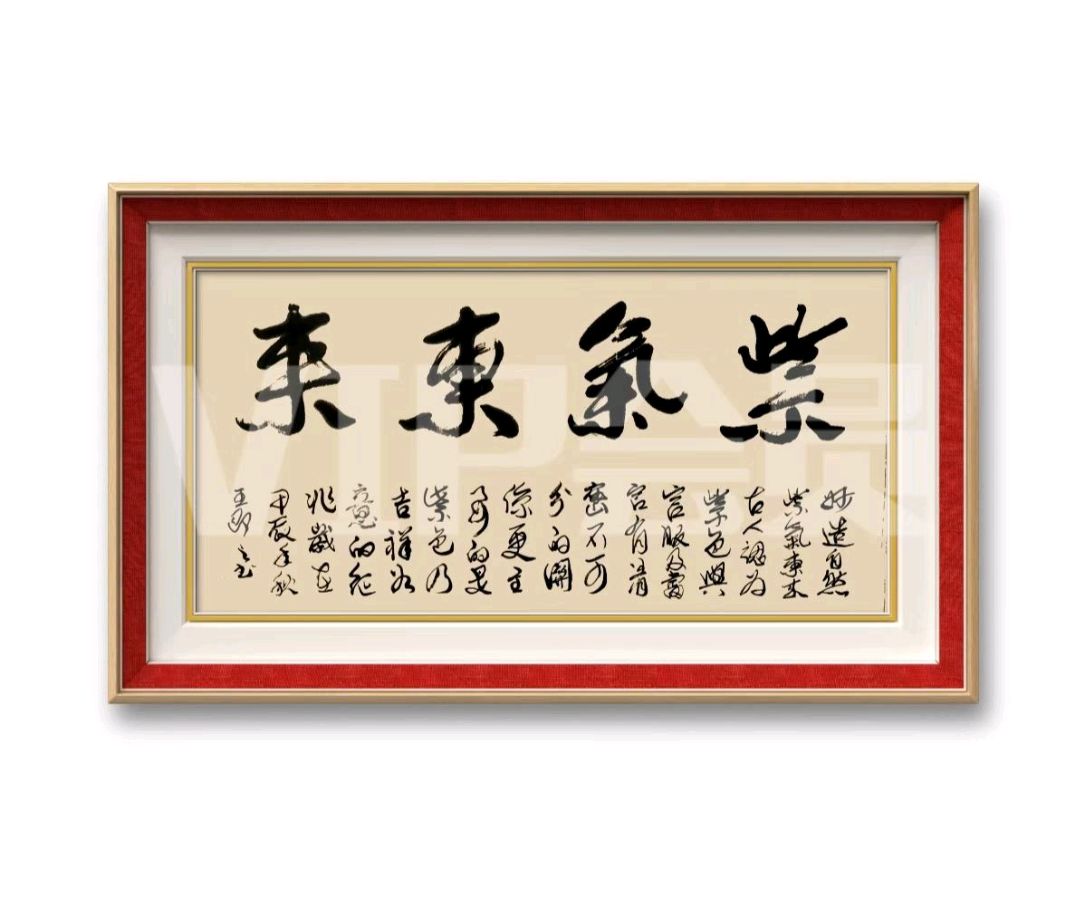 紫氣東來
妙造自然
紫氣東來
古人認為
紫色與
官服及富
有
密不可
分的關
係更主
要的是
紫色乃
吉祥如
的
兆歲在
甲辰年秋
王
VIP会员